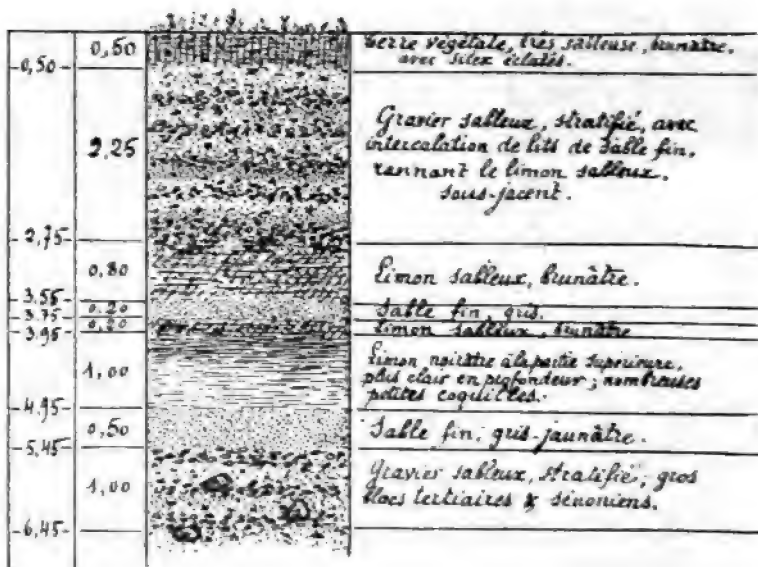 0,50
terre végétale, très sableuse, brunâtre,
avec silex éclatés.
-0,50-
2,25
Gravier sableux, stratifié, avec
intercalation de lits de sable fin,
ravinant le limon sableux
sous-jacent.
-2,75-
0,80
Limon sableux, brunâtre.
-3,55-
0,20
Sable fin, gris.
-3,75-
0,20
Limon sableux, brunâtre
-3,95-
1,00
Limon noirâtre à la partie supérieure,
plus clair en profondeur; nombreuses
petites coquilles.
-4,95-
0,50
Sable fin, gris-jaunâtre.
-5,45-
1,00
Gravier sableux, stratifié; gros
blocs tertiaires & sénoniens.
-6,45-